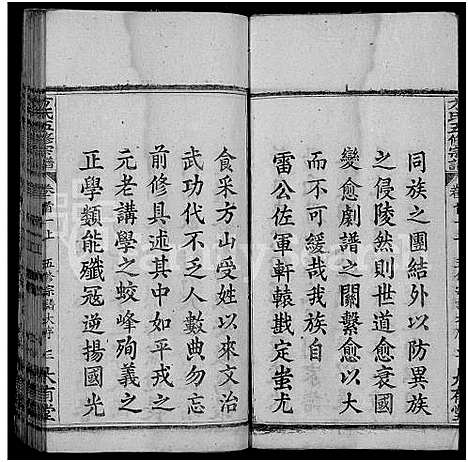 同族之團結外以防異族
之侵陵然則世道愈衰國
變愈劇譜之關繫愈以大
而不可緩哉我族自
雷公佐軍軒轅戡定蚩尤
食采方山受姓以來文治
武功代不乏人數典勿忘
前修具述其中如平三
元老講學之蛟峰殉義之
正學類能殲冦逆揚國光
方氏五修宗譜
卷首上
五修宗譜